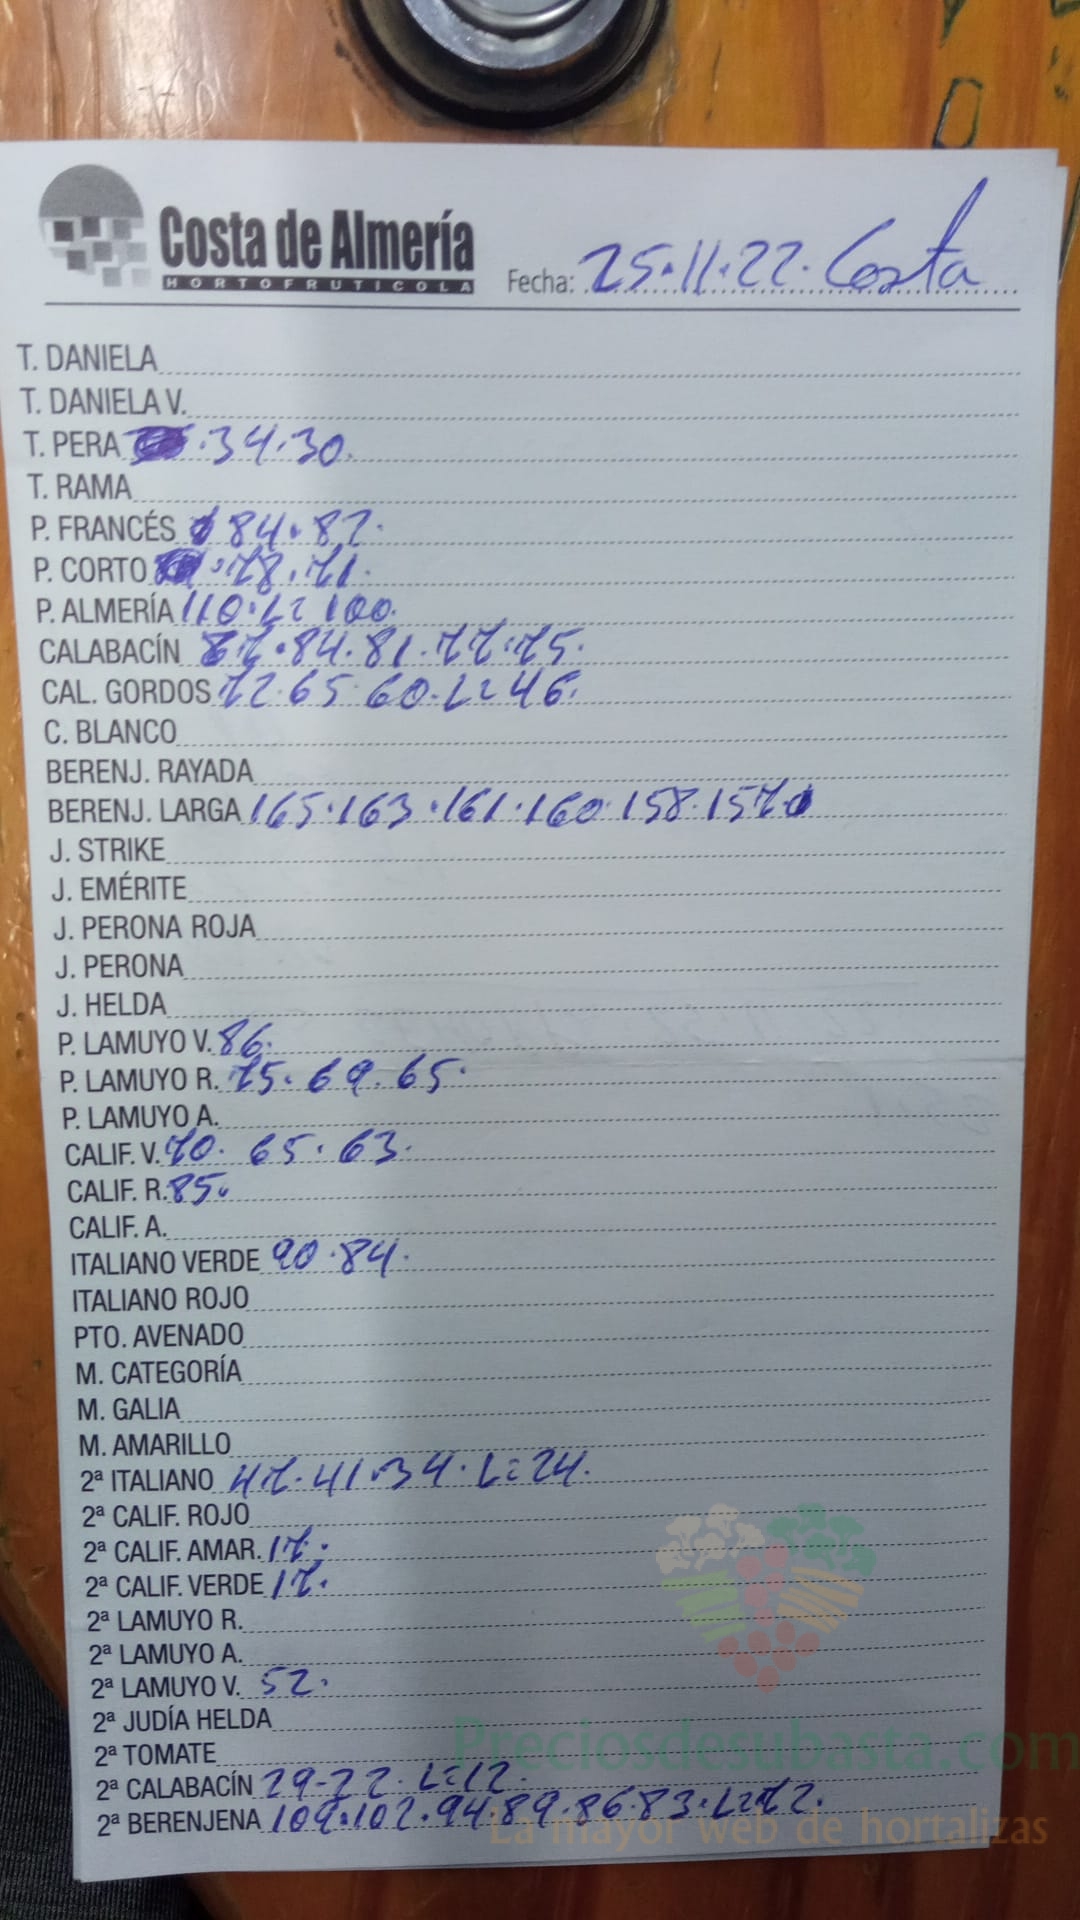 Costa de Almería
HORTOFRUTICOLA
Fecha: 25·11·22· Costa
T. DANIELA
T. DANIELA V.
T. PERA ·34·30.
T. RAMA
P. FRANCÉS 84·82·
P. CORTO ·78·71·
P. ALMERÍA 110·L= 100.
CALABACÍN 87·84·81·77·75·
CAL. GORDOS 72·65·60·L=46·
C. BLANCO
BERENJ. RAYADA
BERENJ. LARGA 165·163·161·160·158·157·
J. STRIKE
J. EMÉRITE
J. PERONA ROJA
J. PERONA
J. HELDA
P. LAMUYO V. 86·
P. LAMUYO R. 75·69·65·
P. LAMUYO A.
CALIF. V. 70·65·63·
CALIF. R. 85·
CALIF. A.
ITALIANO VERDE 90·84·
ITALIANO ROJO
PTO. AVENADO
M. CATEGORÍA
M. GALIA
M. AMARILLO
2ª ITALIANO 47·41·34·L=24·
2ª CALIF. ROJO
2ª CALIF. AMAR. 17·
2ª CALIF. VERDE 17·
2ª LAMUYO R.
2ª LAMUYO A.
2ª LAMUYO V. 52·
2ª JUDÍA HELDA
2ª TOMATE
2ª CALABACÍN 29-22·L=12·
2ª BERENJENA 109·102·94·89·86·83·L=72·
Preciosdesubasta.com
La mayor web de hortalizas